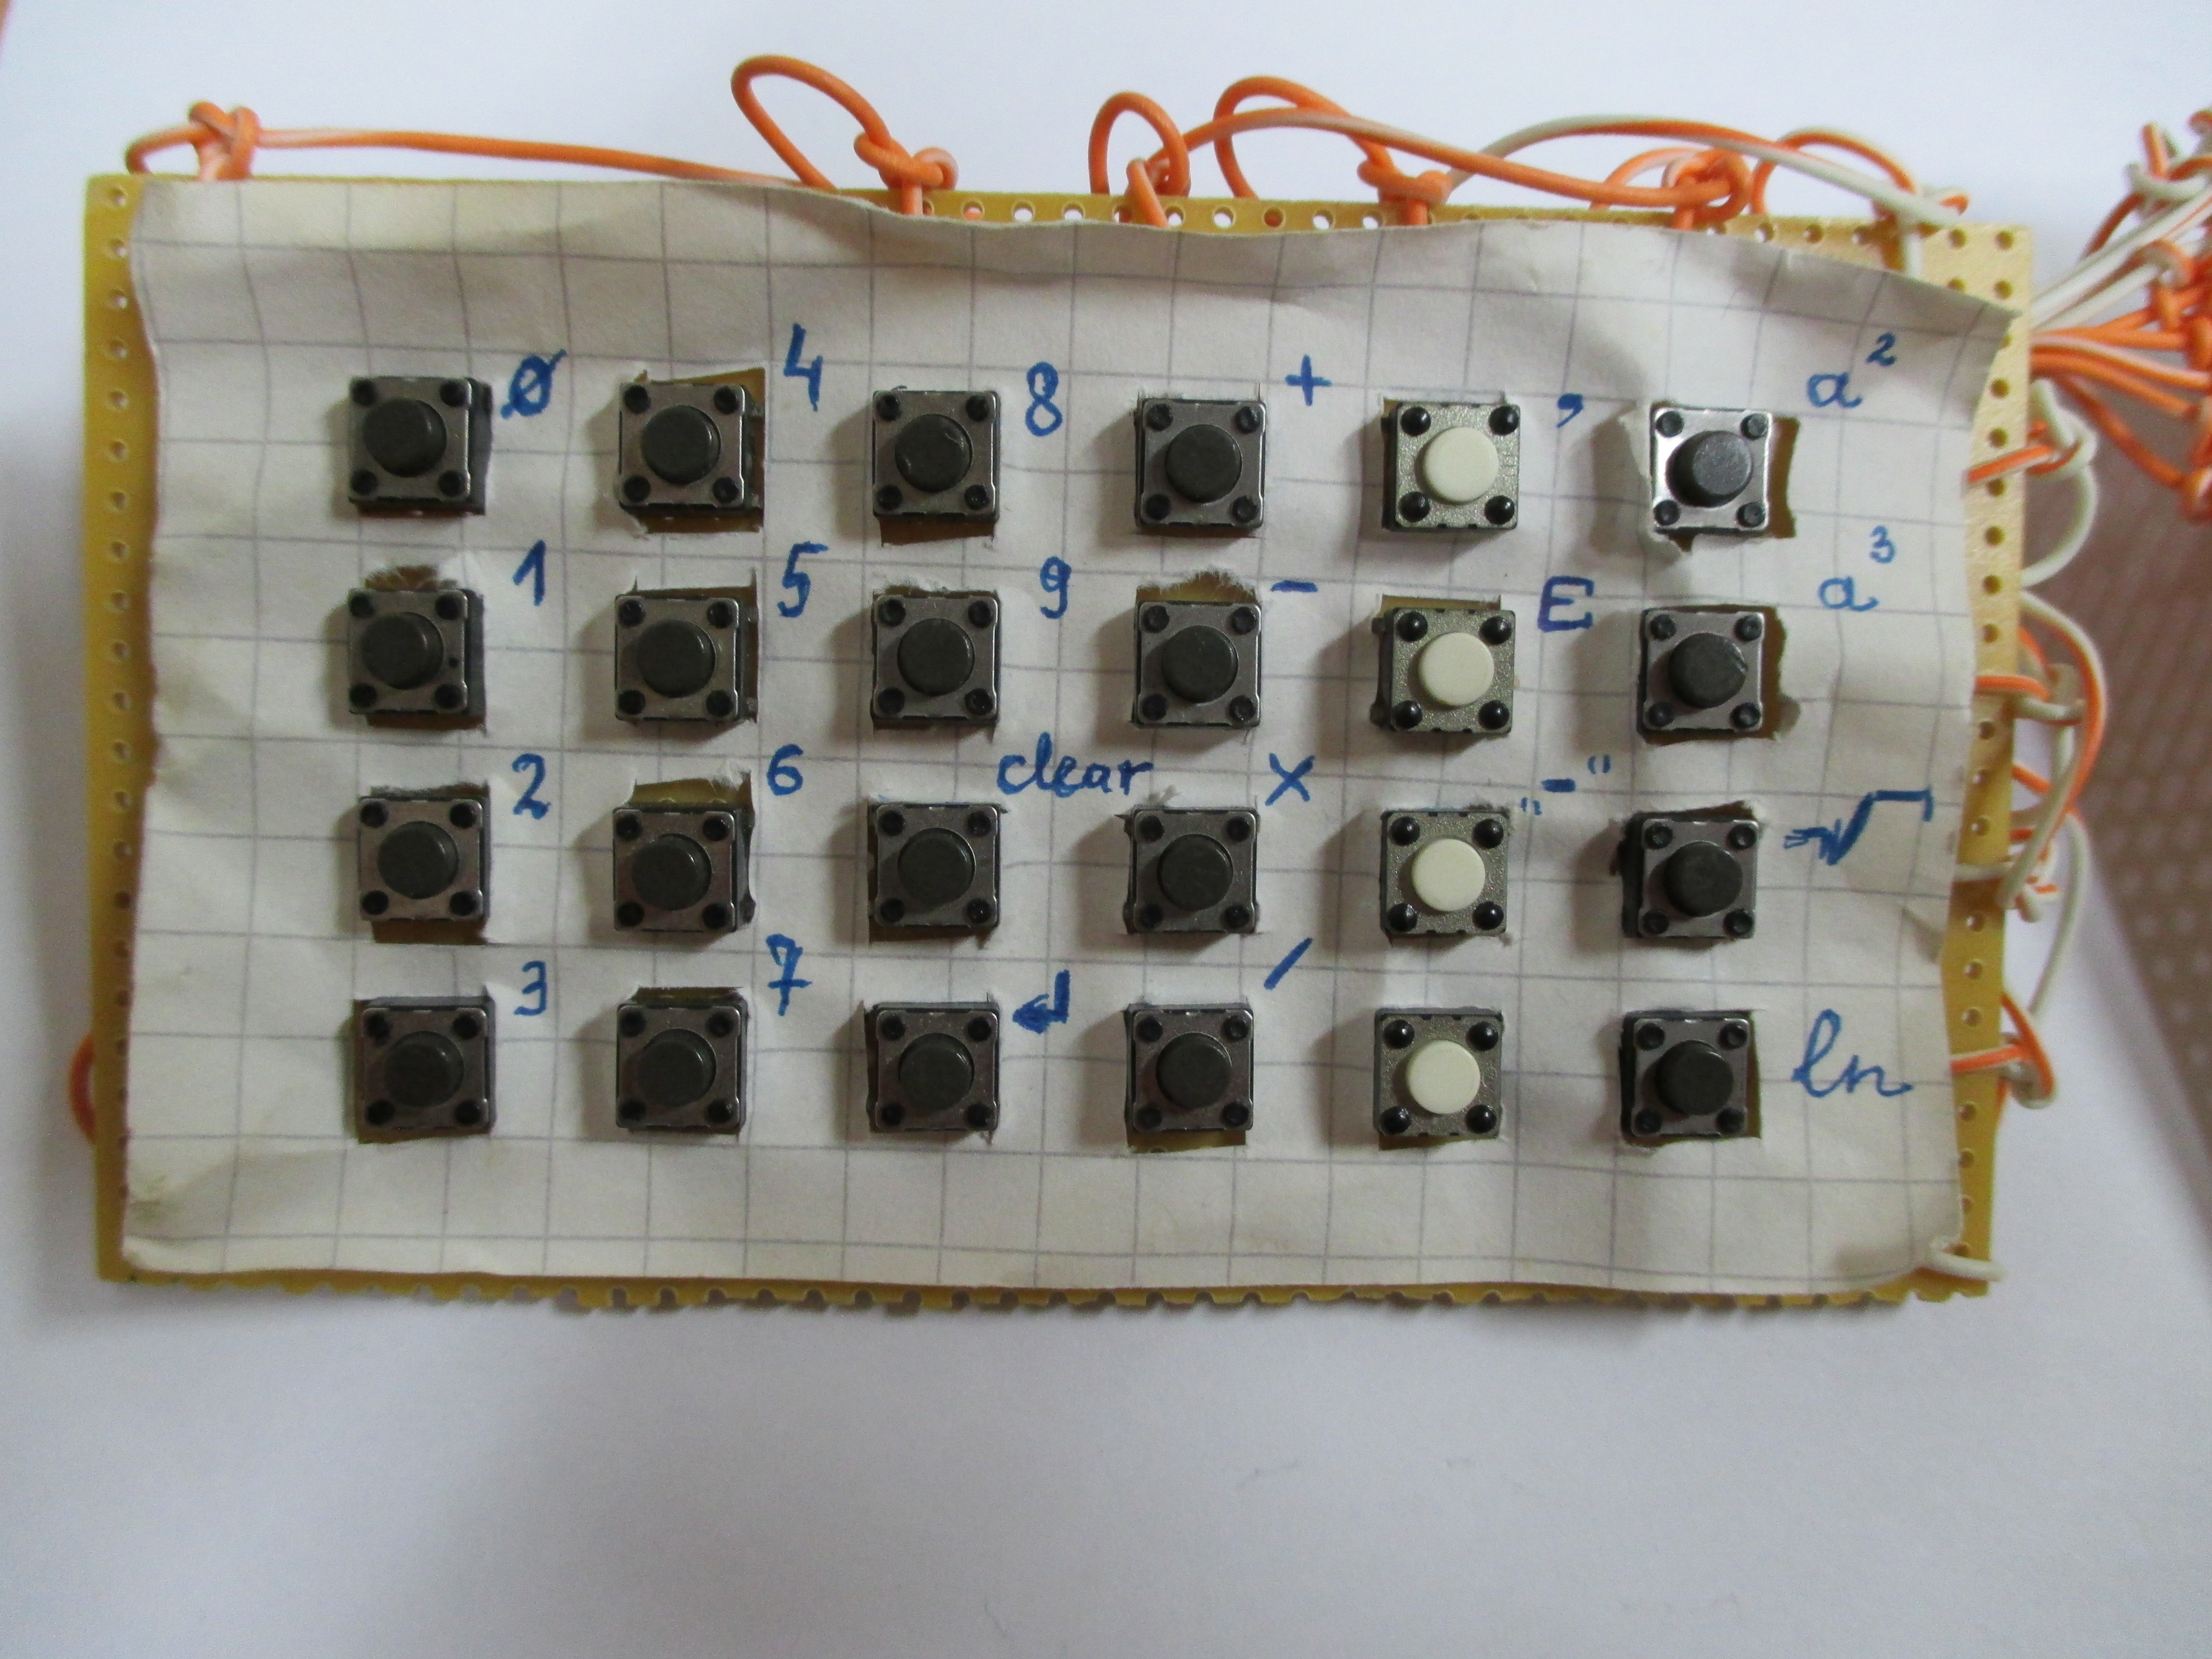 Ø 4 8 + , a²
1 5 9 - E a³
2 6 clear X „-“ √
3 7 ↲ / ln